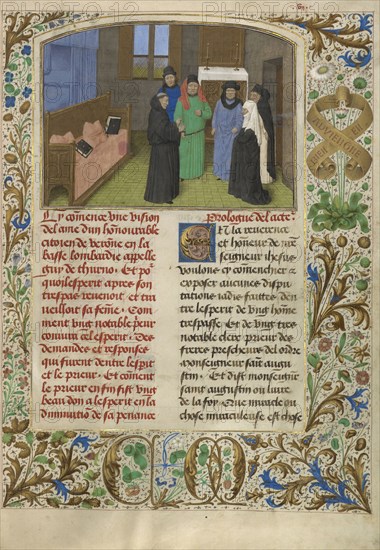 Cy commence vne vision
de lame dun honnourable
citoien de veronne en la
basse lombardie appelle
guy de thurno. Et po'
quoy lesperit apres son
trespas reuenoit et tra
ueilloit sa feme. Com
ment vng notable prieur
coniura cel esperit. Des
demandes et responces
qui furent dentre lesprit
et le prieur. Et coment
le prieur en fin fist vng
beau don a lesperit en la
diminution de sa penance
Prologue de lacte
En la reuerence
et honneur de nre
seigneur ihesus
voulons cy comenchier a
exposer aucunes dispu
tations iadis faittes den
tre lesperit de vng home
trespasse. Et de vng tres
notable clerc prieur des
freres prescheurs de lordre
monseigneur saint augu
stin. Et dist monseigneur
saint augustin ou liure
de la foy. Que miracle ou
chose miraculeuse est chose